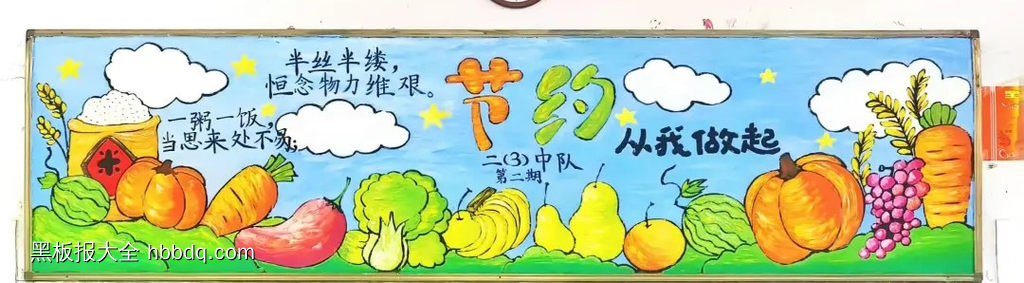 半丝半缕，
恒念物力维艰。
一粥一饭，
当思来处不易；
节约
从我做起
二(3)中队
第二期
米
黑板报大全 hbbdq.com